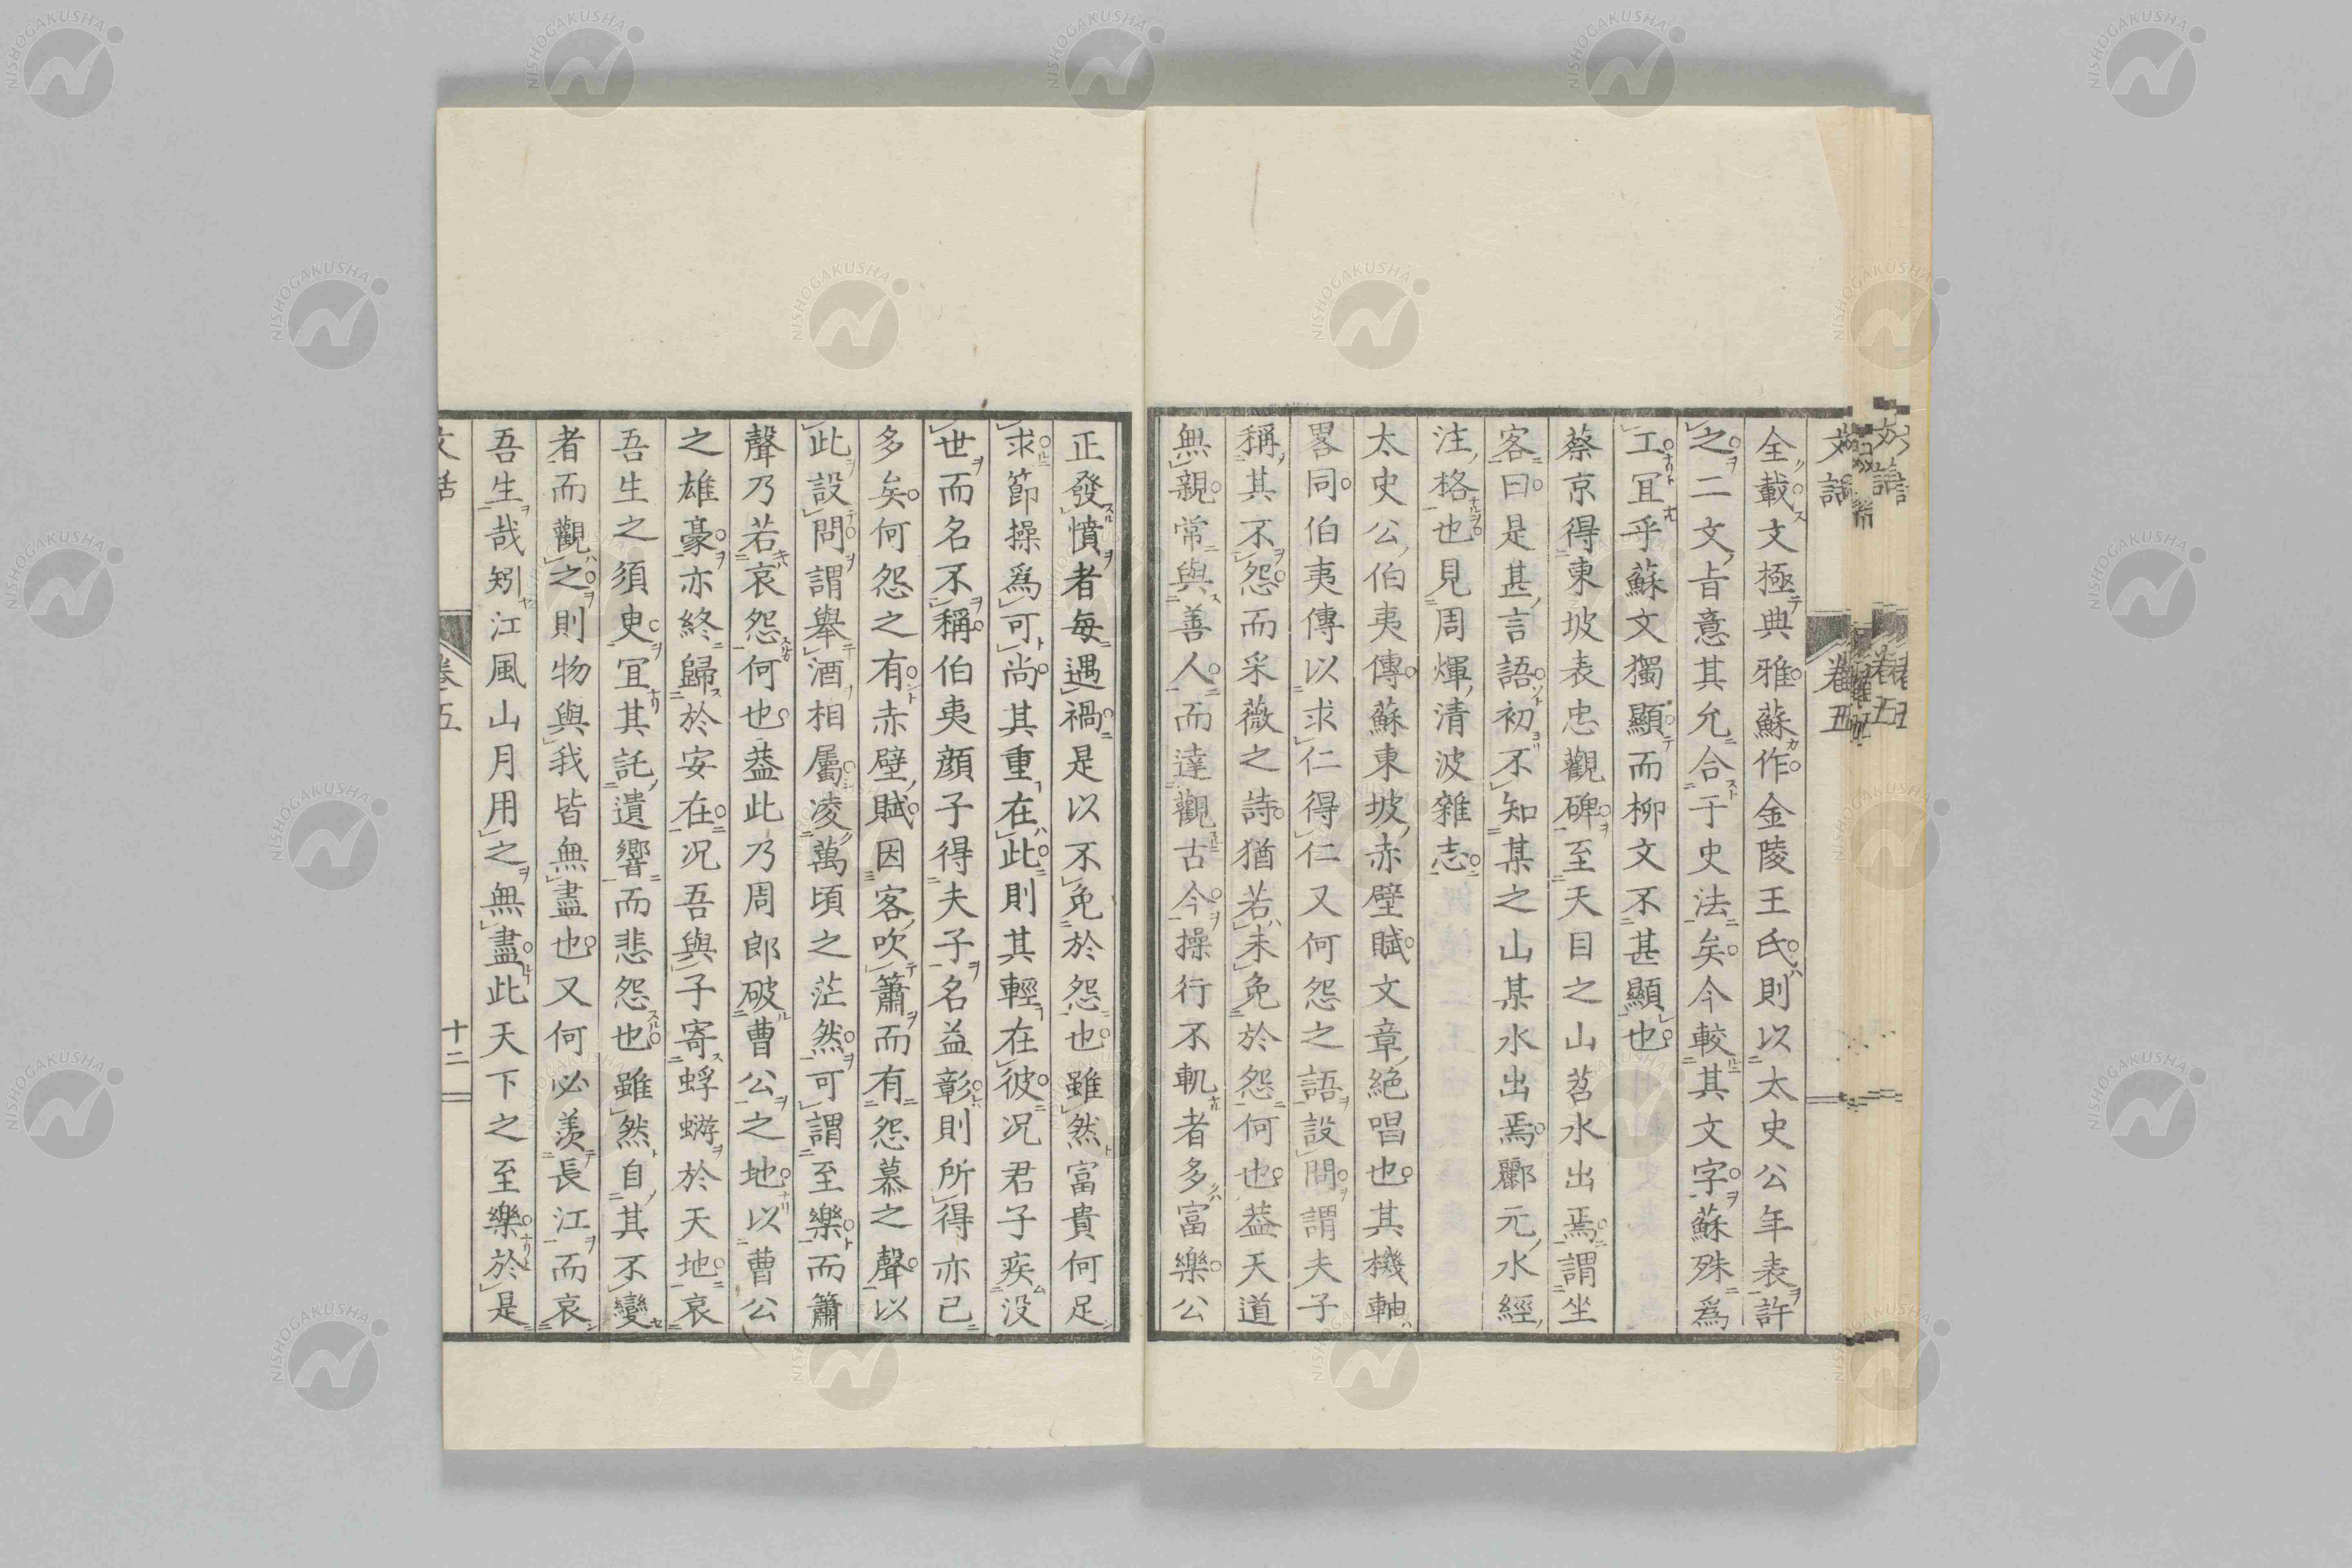 全載文極典雅蘇作金陵王氏則以太史公年表許
之二文旨意其允合于史法矣今較其文字蘇殊爲
工冝乎蘇文獨顯而柳文不甚顯也
蔡京得東坡表忠觀碑至天目之山苕水出焉謂坐
客曰是甚言語初不知某之山某水出焉酈元水經
注格也見周煇清波雜志
太史公伯夷傳蘇東坡赤壁賦文章絶唱也其機軸
畧同伯夷傳以求仁得仁又何怨之語設問謂夫子
稱其不怨而采薇之詩猶若未免於怨何也葢天道
無親常與善人而達觀古今操行不軌者多富樂公
正發憤者每遇禍是以不免於怨也雖然富貴何足
求節操爲可尚其重在此則其輕在彼况君子疾没
世而名不稱伯夷顔子得夫子名益彰則所得亦已
多矣何怨之有赤壁賦因客吹簫而有怨慕之聲以
此設問謂舉酒相屬凌萬頃之茫然可謂至樂而簫
聲乃若哀怨何也葢此乃周郎破曹公之地以曹公
之雄豪亦終歸於安在况吾與子寄蜉蝣於天地哀
吾生之須史冝其託遺響而悲怨也雖然自其不變
者而觀之則物與我皆無盡也又何必羨長江而哀
吾生哉矧江風山月用之無盡此天下之至樂於是
文話 卷五 十二
NISHOGAKUSHA